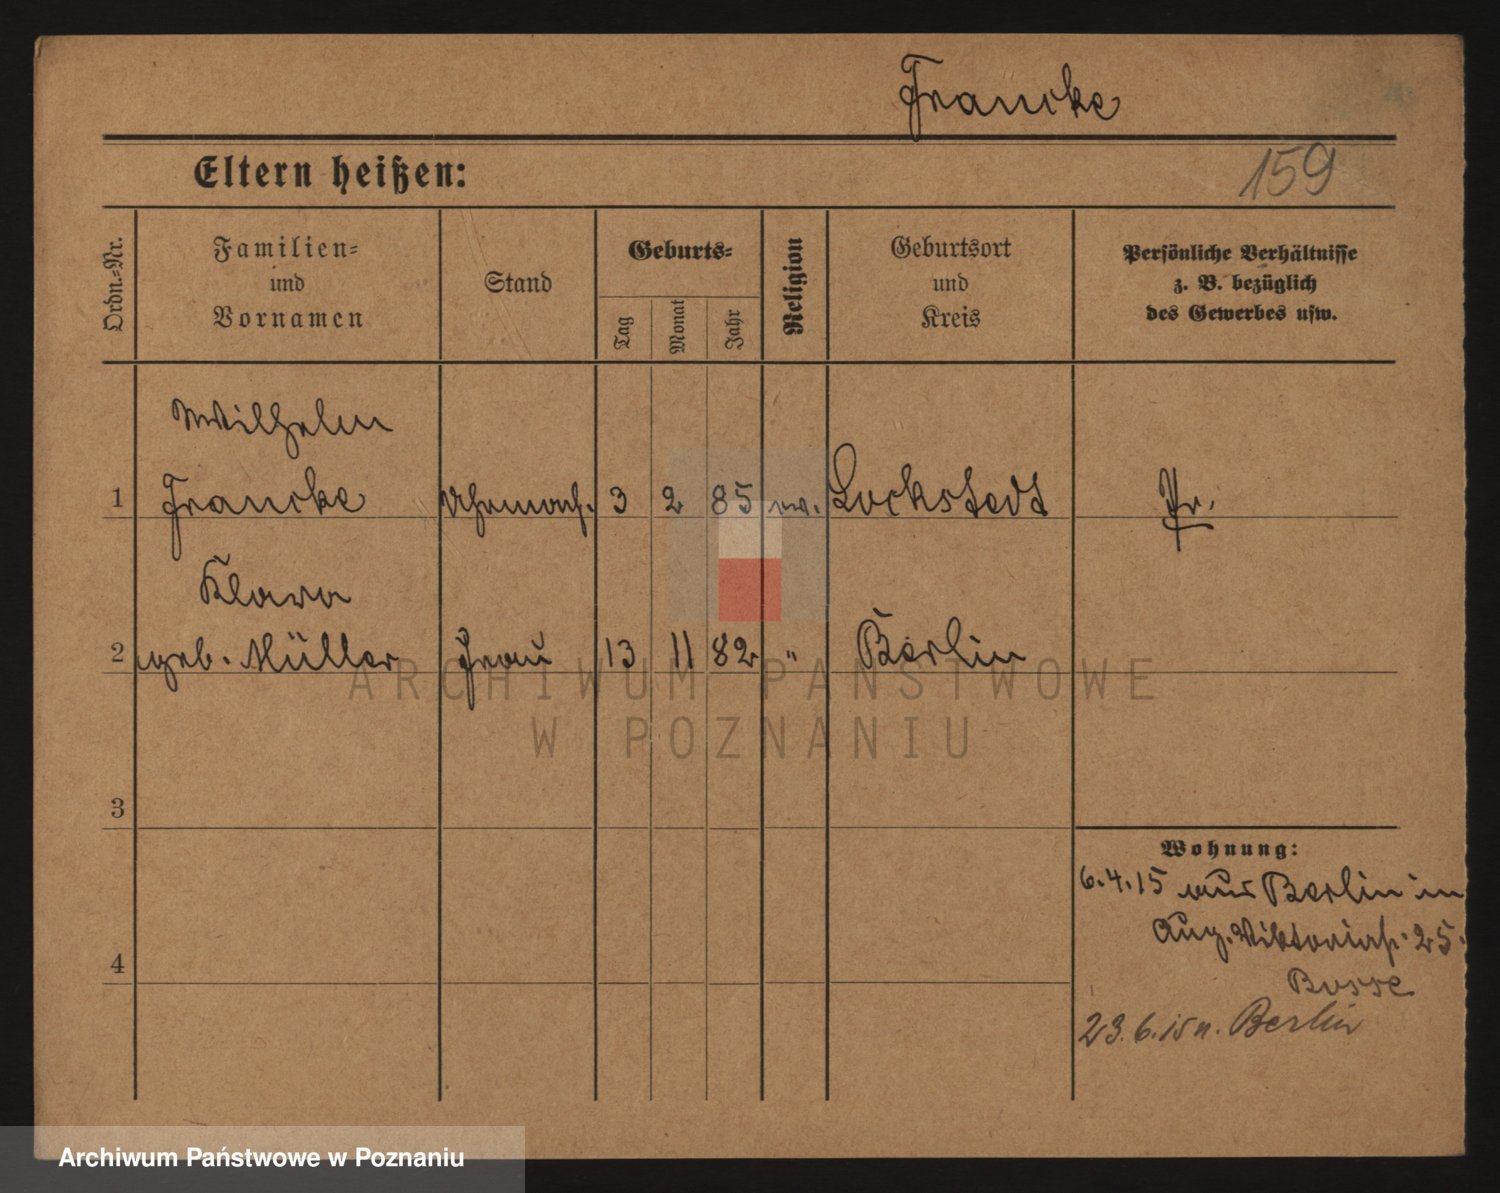 Francke
Eltern heißen:
159
Ordn.-Nr.
Familien-
und
Vornamen
Stand
Geburts-
Tag
Monat
Jahr
Religion
Geburtsort
und
Kreis
Persönliche Verhältnisse
z. B. bezüglich
des Gewerbes usw.
Wilhelm
1 Francke Uhrmach. 3 2 85 ev. Lockstedt Pr.
Klara
2 geb. Müller Frau 13 11 82 " Berlin
ARCHIWUM PAŃSTWOWE
W POZNANIU
3
Wohnung:
6.4.15 aus Berlin in
Aug. Viktoriast. 25.
4
Bosse
23.6.15 n. Berlin
Archiwum Państwowe w Poznaniu